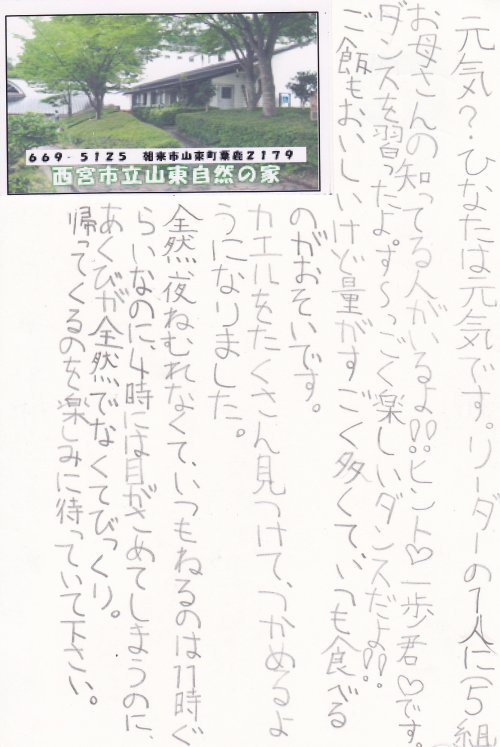 669-5125 朝来市山東町粟鹿2179
西宮市立山東自然の家
元気?・ひなたは元気です。リーダーの1人に(5組
お母さんの知ってる人がいるよ!!ヒント♡一歩君♡です。
ダンスを習ったよ。す〜っごく楽しいダンスだよ!!
ご飯もおいしいけど量がすごく多くて、いつも食べる
のがおそいです。
カエルをたくさん見つけて、つかめるよ
うになりました。
全然夜ねむれなくて、いつもねるのは11時ぐ
らいなのに、4時には目がさめてしまうのに、
あくびが全然でなくてびっくり。
帰ってくるのを楽しみに待っていて下さい。